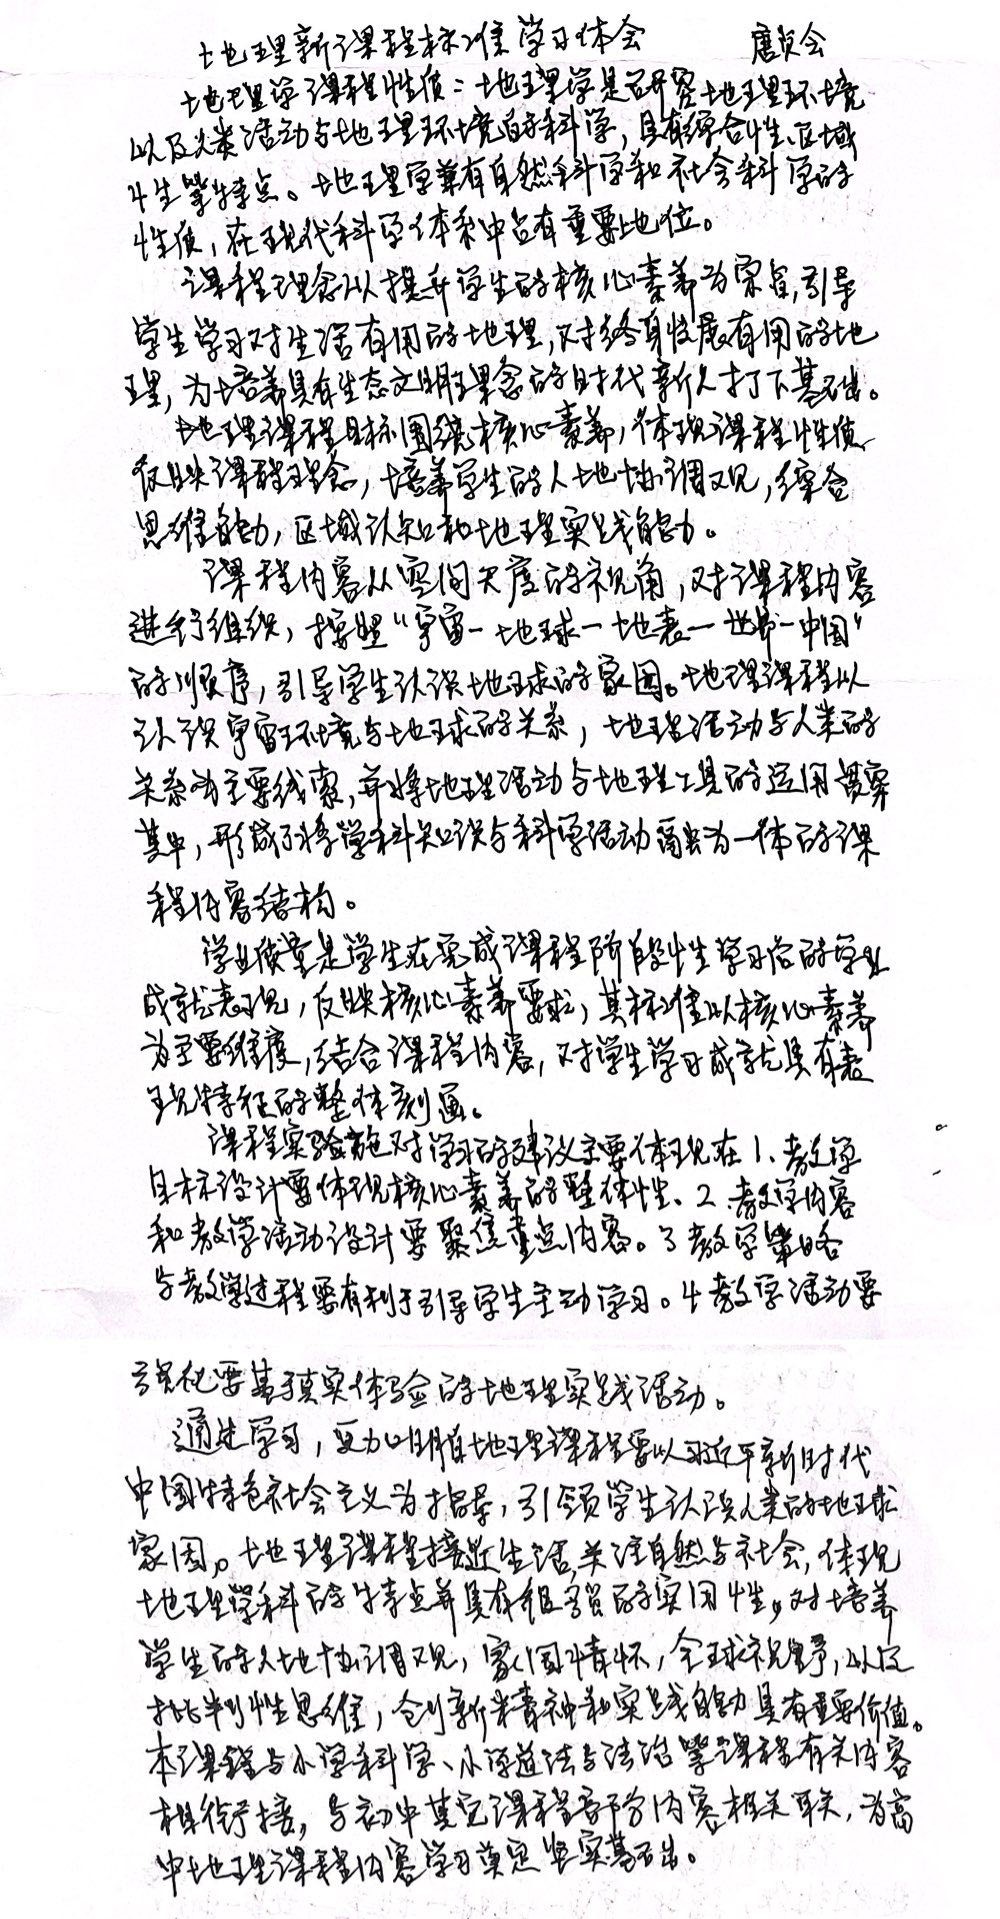 地理新课程标准学习体会 唐贞会
地理学课程性质：地理学是研究地理环境
以及人类活动与地理环境的科学，具有综合性、区域
性等特点。地理学兼有自然科学和社会科学的
性质，在现代科学体系中占有重要地位。
课程理念以提升学生的核心素养为宗旨，引导
学生学习对生活有用的地理，对终身发展有用的地
理，为培养具有生态文明理念的时代新人打下基础。
地理课程目标围绕核心素养，体现课程性质、
反映课程理念，培养学生的人地协调观，综合
思维能力，区域认知和地理实践能力。
课程内容从空间尺度的视角，对课程内容
进行组织，按照“宇宙一地球一地表一世界一中国”
的顺序，引导学生认识地球的家园。地理课程以
认识宇宙环境与地球的关系，地理活动与人类的
关系为主要线索，并将地理活动与地理工具的运用贯穿
其中，形成了将学科知识与科学活动融为一体的课
程内容结构。
学业质量是学生在完成课程阶段性学习后的学业
成就表现，反映核心素养要求，其标准以核心素养
为主要维度，结合课程内容，对学生学习成就具有表
现特征的整体刻画。
课程实验施对学习的建议主要体现在 1、教学
目标设计要体现核心素养的整体性、2、教学内容
和教学活动设计要聚焦重点内容。3 教学策略
与教学过程要有利于引导学生主动学习。4 教学活动要
强化要基于真实体验的地理实践活动。
通过学习，更加明白地理课程要以习近平新时代
中国特色社会主义为指导，引领学生认识人类的地球
家园。地理课程接近生活，关注自然与社会，体现
地理学科的特点并具有很强的实用性，对培养
学生的人地协调观，家国情怀，全球视野，以及
批判性思维，创新精神和实践能力具有重要价值。
本课程与小学科学、小学道法与法治等课程有关内容
相衔接，与初中其它课程部分内容相关联，为高
中地理课程内容学习奠定坚实基础。